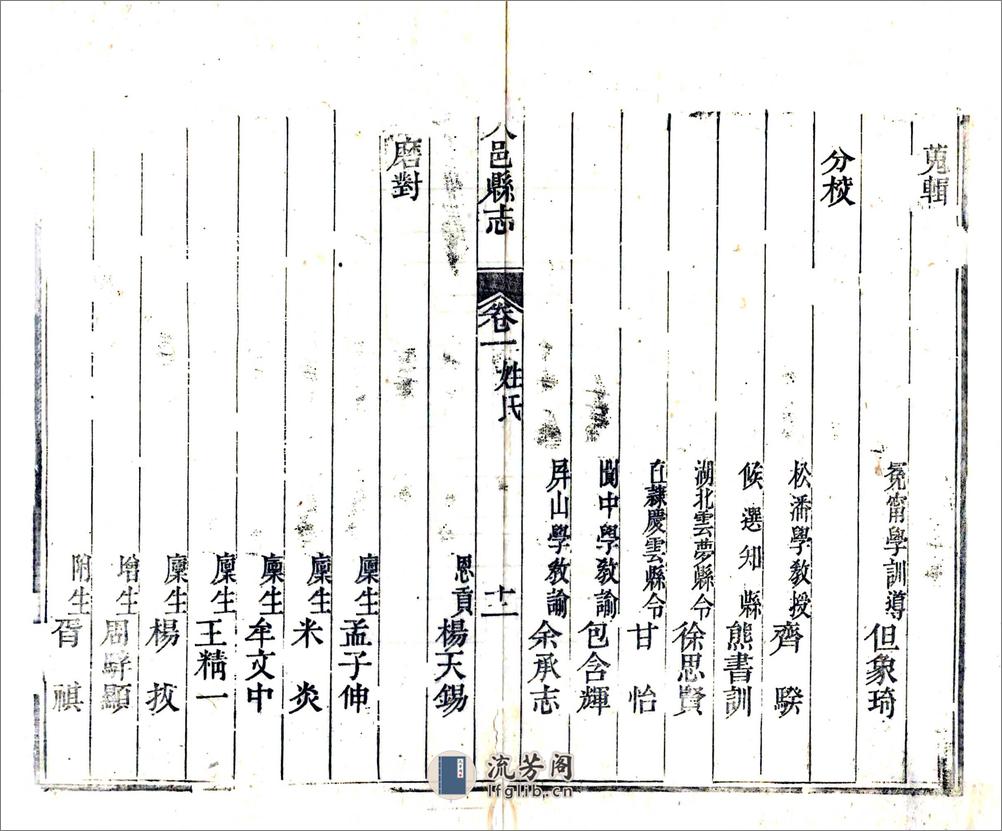 蒐輯
冕甯學訓導但象琦
分校
松潘學教授齊騤
候選知縣熊書訓
湖北雲夢縣令徐思賢
直隸慶雲縣令甘怡
閬中學教諭包含輝
屏山學教諭余承志
邑縣志 卷一 姓氏 十二
恩貢楊天錫
磨對
廩生孟子伸
廩生米炎
廩生牟文中
廩生王精一
廩生楊
增生周 顯
附生胥祺
流芳阁
lfglib.cn